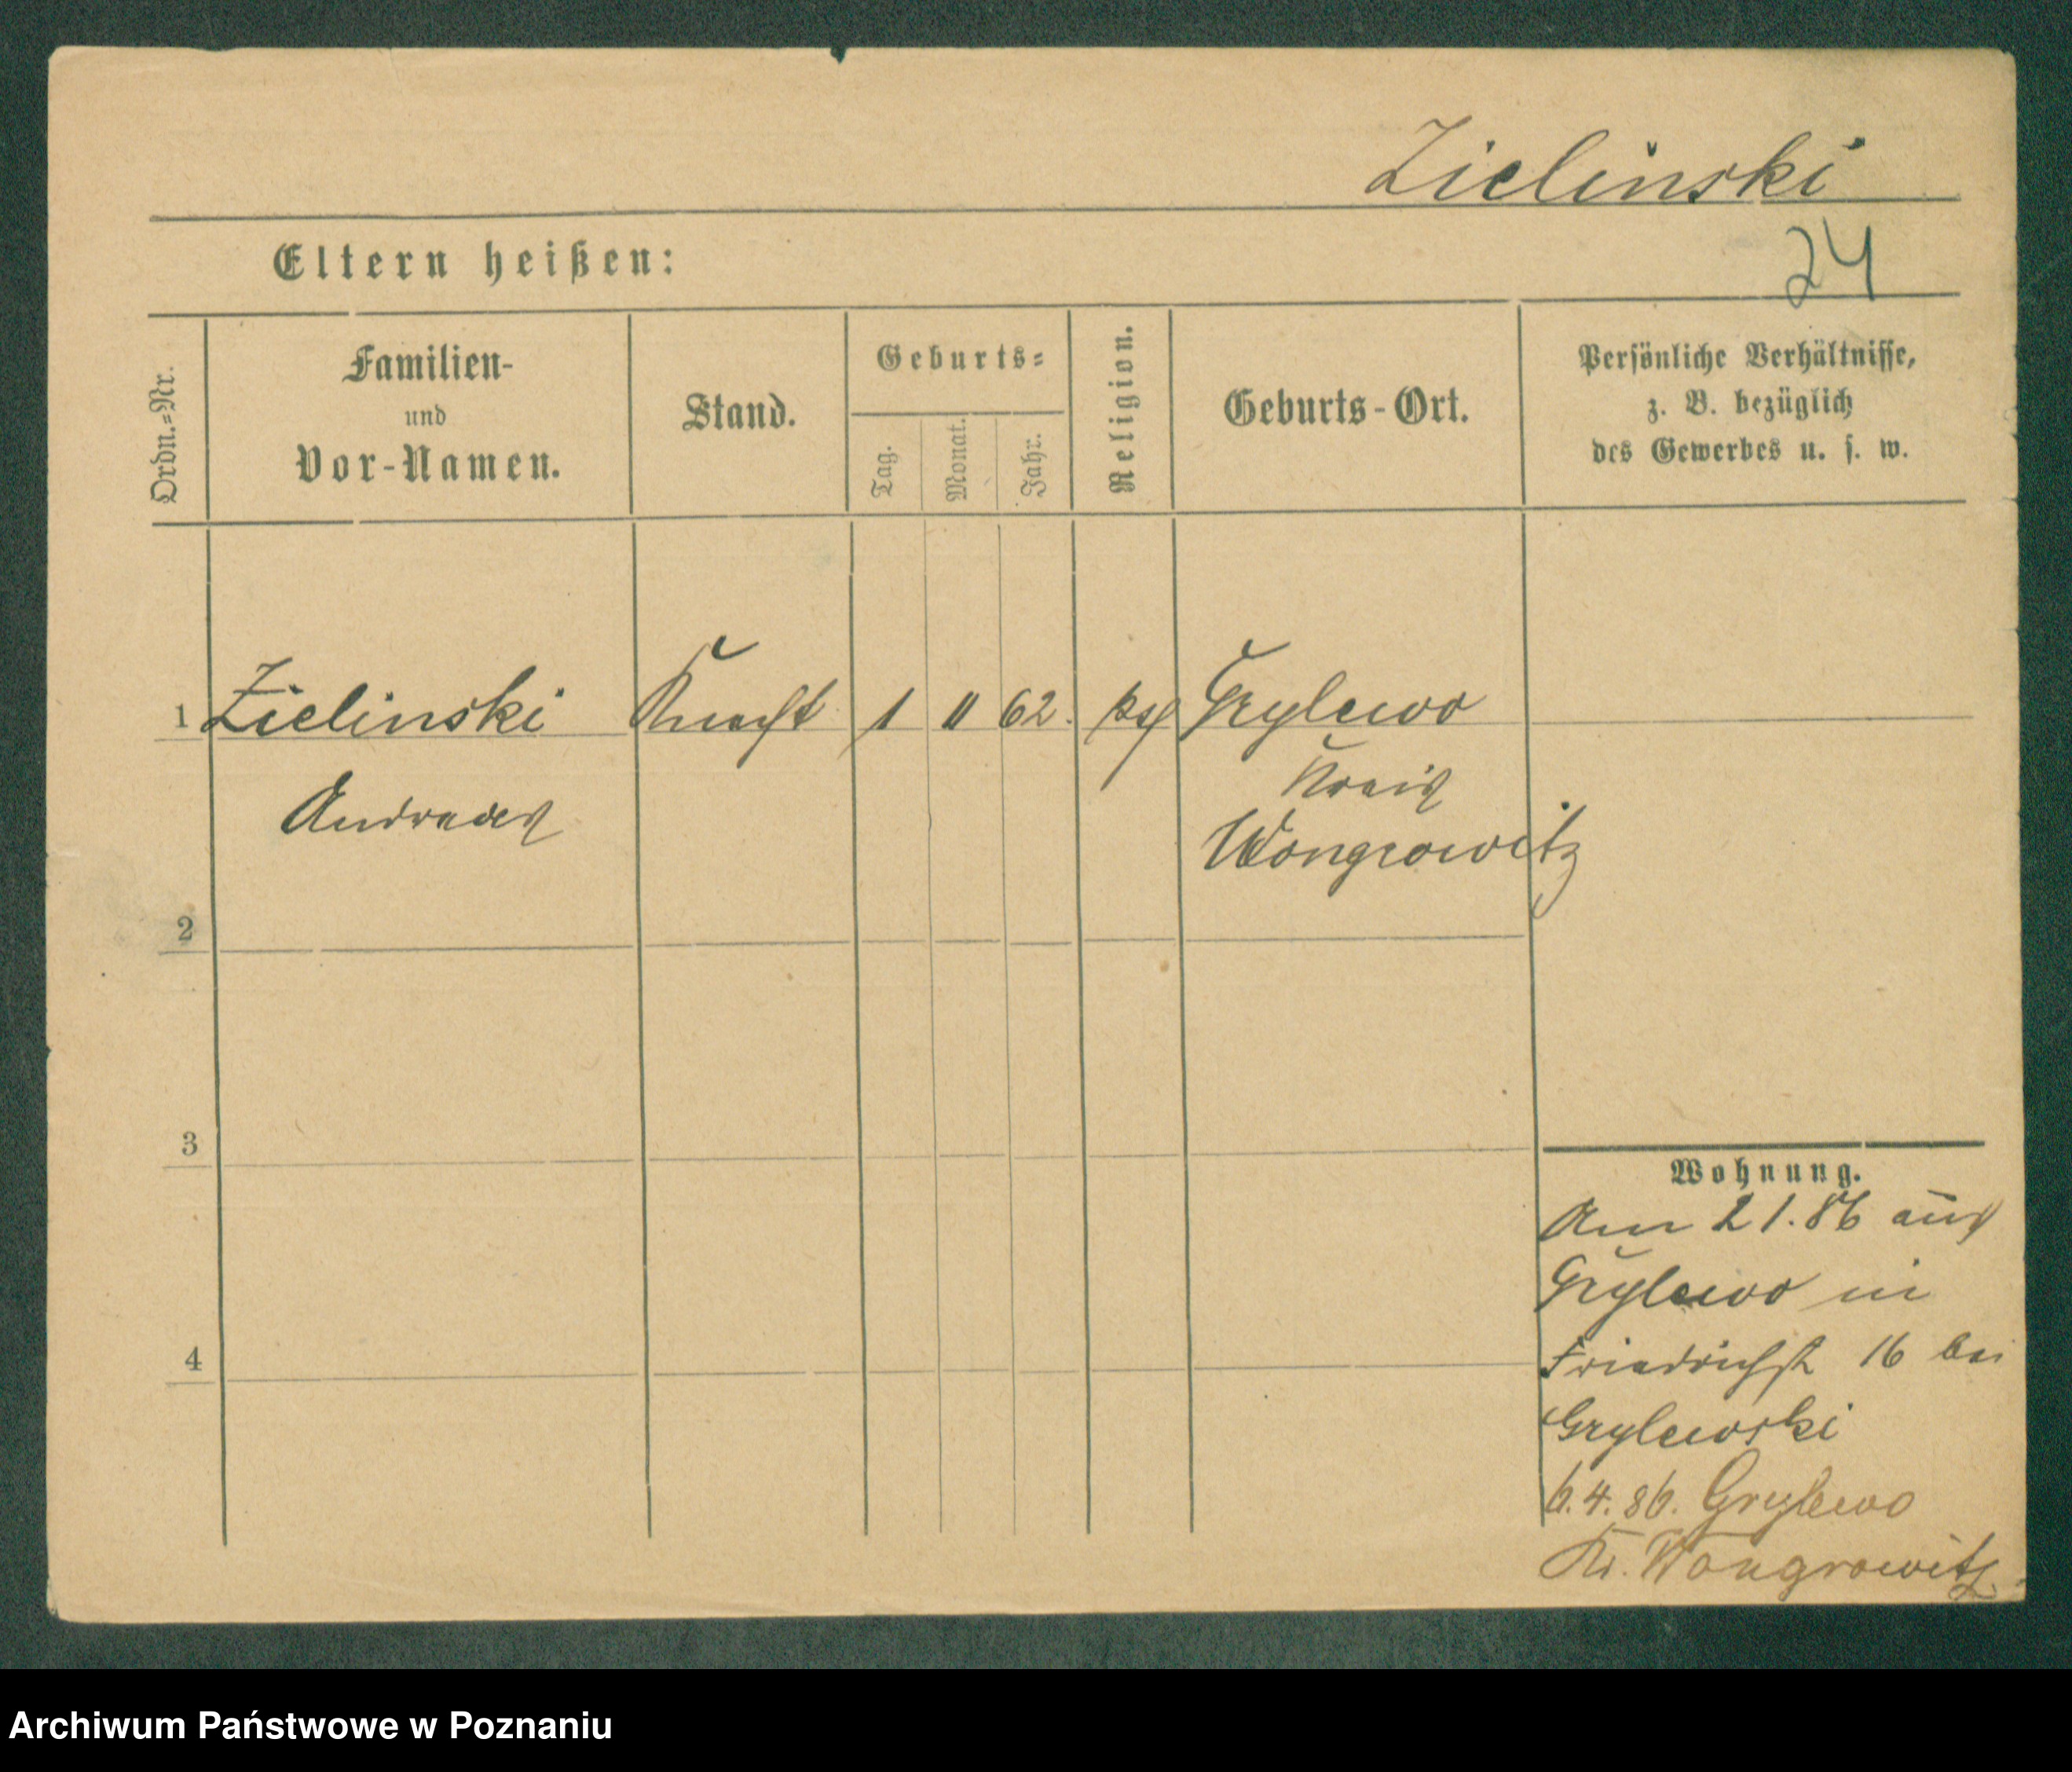 Zielinski
Eltern heißen:
24
Ordn.=Nr.
Familien-
und
Vor-Namen.
Stand.
Geburts=
Tag.
Monat.
Jahr.
Religion.
Geburts-Ort.
Persönliche Verhältnisse,
z. B. bezüglich
des Gewerbes u. s. w.
1 Zielinski Knecht 1 11 62. Grylewo
Andreas Kreis
Wongrowitz
2
3
4
Wohnung.
Am 2 1. 86 aus
Grylewo in
Friedrichst 16 bei
Grylewski
6.4.86. Grylewo
Kr. Wongrowitz
Archiwum Państwowe w Poznaniu